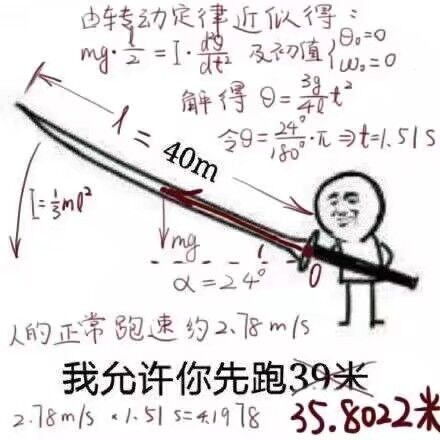 由转动定律近似得：
mg·l/2 = I·d²θ/dt² 及初值{θ₀=0 ω₀=0
解得 θ=3g/4l t²
令θ=24°/180°·π ⇒ t=1.51s
l = 40m
I=1/3ml²
mg
α=24°
O
人的正常跑速约2.78m/s
我允许你先跑39米
2.78m/s × 1.51s=4.1978
35.8022米